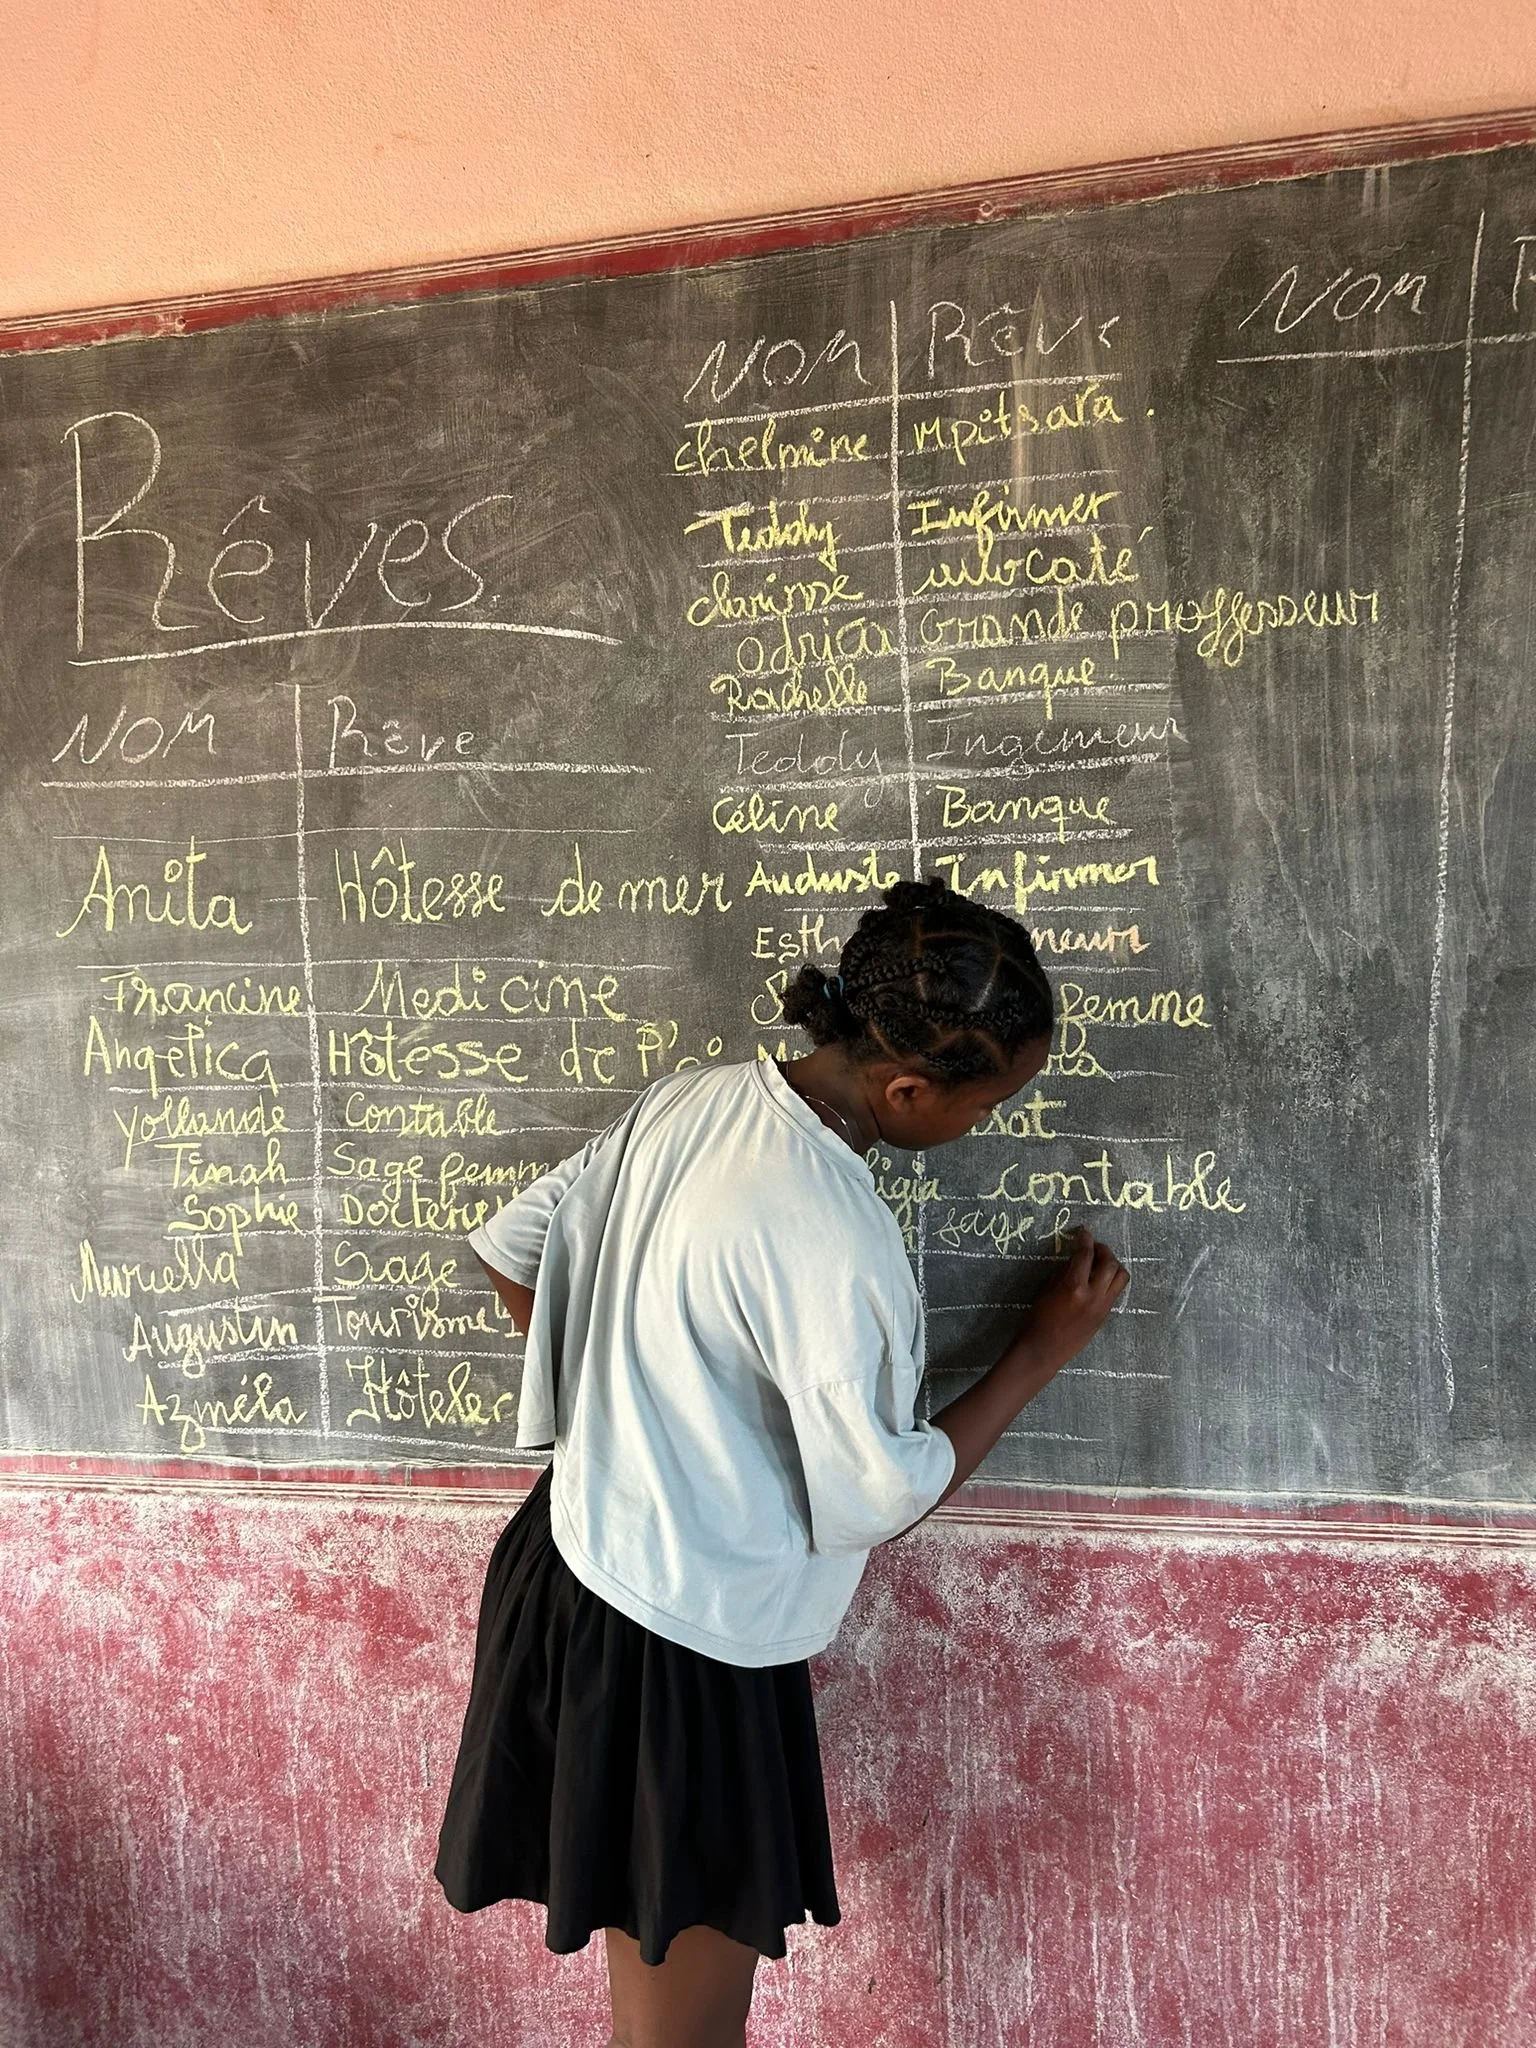 Rêves
NOM Rêve
Anita Hôtesse de mer
Francine Medicine
Angelica Hôtesse de
Yollande Contable
Tinah Sage femm
Sophie
Muriella Sage
Augustin Tourisme
Azméla Hôteler
NOM Rêve
chelmine Mpitsara.
Teddy Infirmer
clarisse avocaté
Odrica Grande proffesseur
Rachelle Banque
Teddy Ingenieur
Céline Banque
Auduste Infirmer
Esth neaur
femme
contable
sage f
NOM R